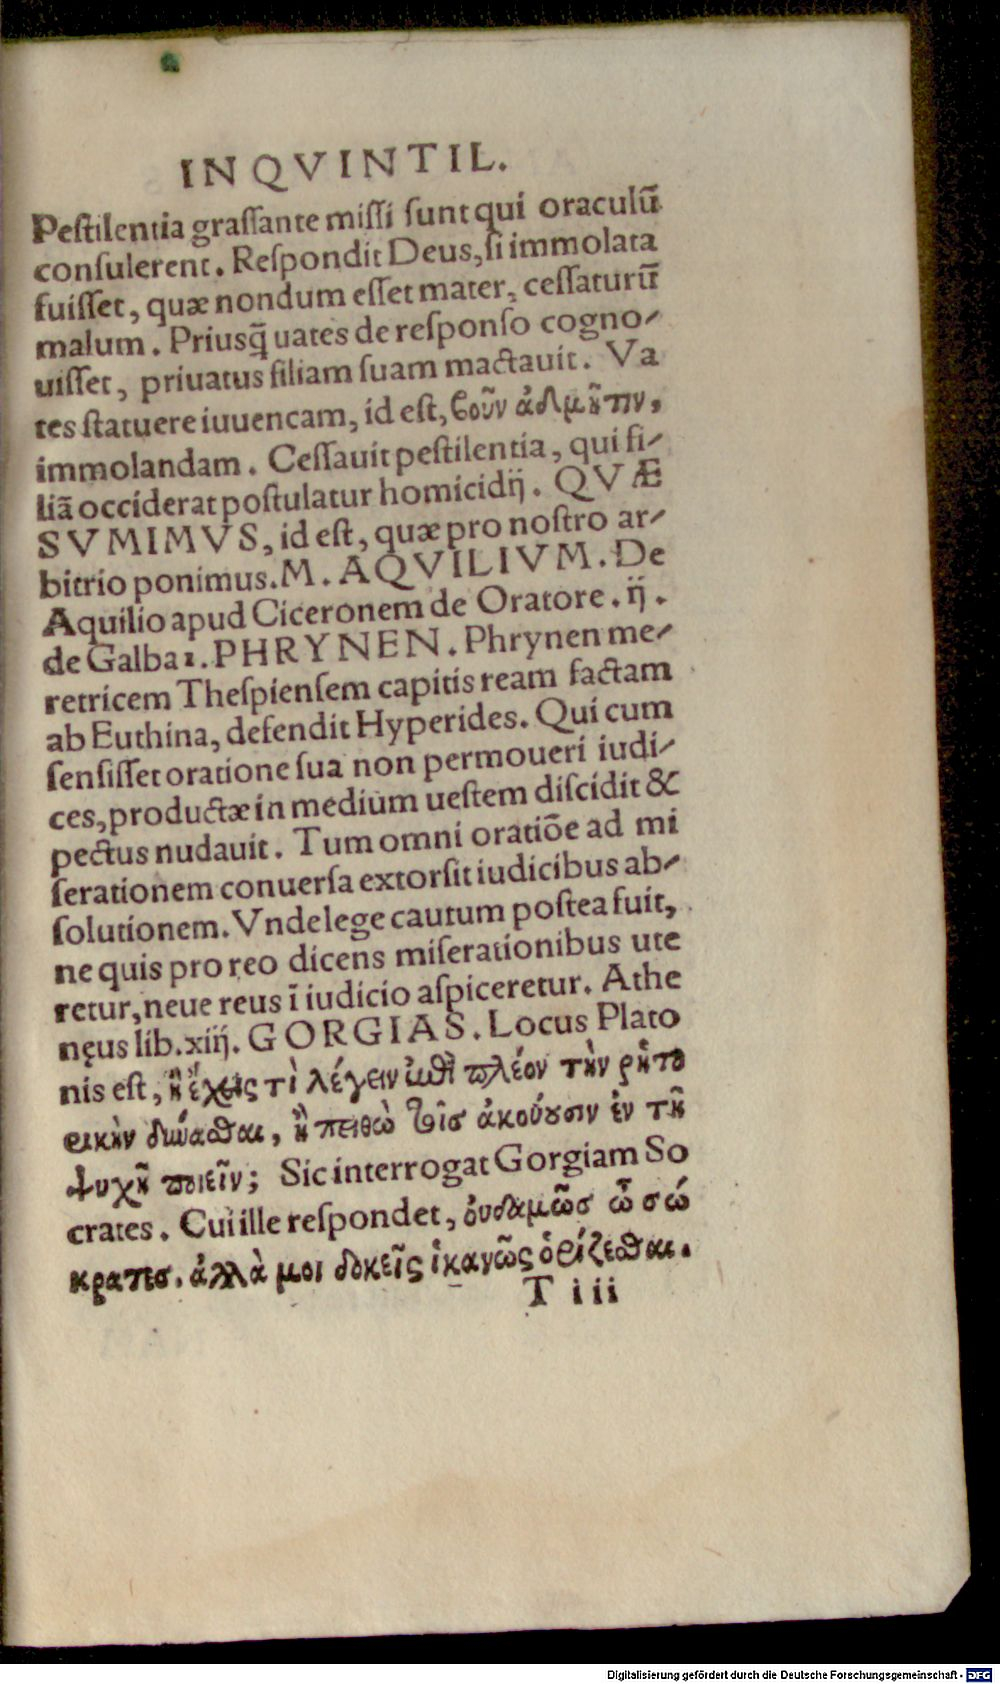 INQVINTIL.
Peſtilentia graſſante miſſi ſunt qui oraculū
conſulerent. Reſpondit Deus, ſi immolata
fuiſſet, quæ nondum eſſet mater, ceſſaturū
malum. Priusq̃ uates de reſponſo cogno-
uiſſet, priuatus filiam ſuam mactauit. Va
tes ſtatuere iuuencam, id eſt, βοῦν ἀδμῆτιν,
immolandam. Ceſſauit peſtilentia, qui fi-
liā occiderat poſtulatur homicidij. QVÆ
SVMIMVS, id eſt, quæ pro noſtro ar-
bitrio ponimus. M. AQVILIVM. De
Aquilio apud Ciceronem de Oratore. ij.
de Galba 1. PHRYNEN. Phrynen me-
retricem Theſpienſem capitis ream factam
ab Euthina, defendit Hyperides. Qui cum
ſenſiſſet oratione ſua non permoueri iudi-
ces, productæ in medium ueſtem diſcidit &
pectus nudauit. Tum omni oratiōe ad mi
ſerationem conuerſa extorſit iudicibus ab-
ſolutionem. Vnde lege cautum poſtea fuit,
ne quis pro reo dicens miſerationibus ute
retur, neue reus ī iudicio aſpiceretur. Athe
nęus lib. xiij. GORGIAS. Locus Plato
nis eſt, ἢ ἔχεις τὶ λέγειν ἐπὶ πλέον τὴν ῥητο
ρικὴν δύνασθαι, ἢ πειθὼ τοῖσ ἀκούουσιν ἐν τῆ
ψυχῆ ποιεῖν; Sic interrogat Gorgiam So
crates. Cui ille reſpondet, ὀυδαμῶσ ὦ σώ
κρατεσ. ἀλλὰ μοι δοκεῖς ἱκανῶς ὁρίζεσθαι.
T iii
Digitalisierung gefördert durch die Deutsche Forschungsgemeinschaft - DFG